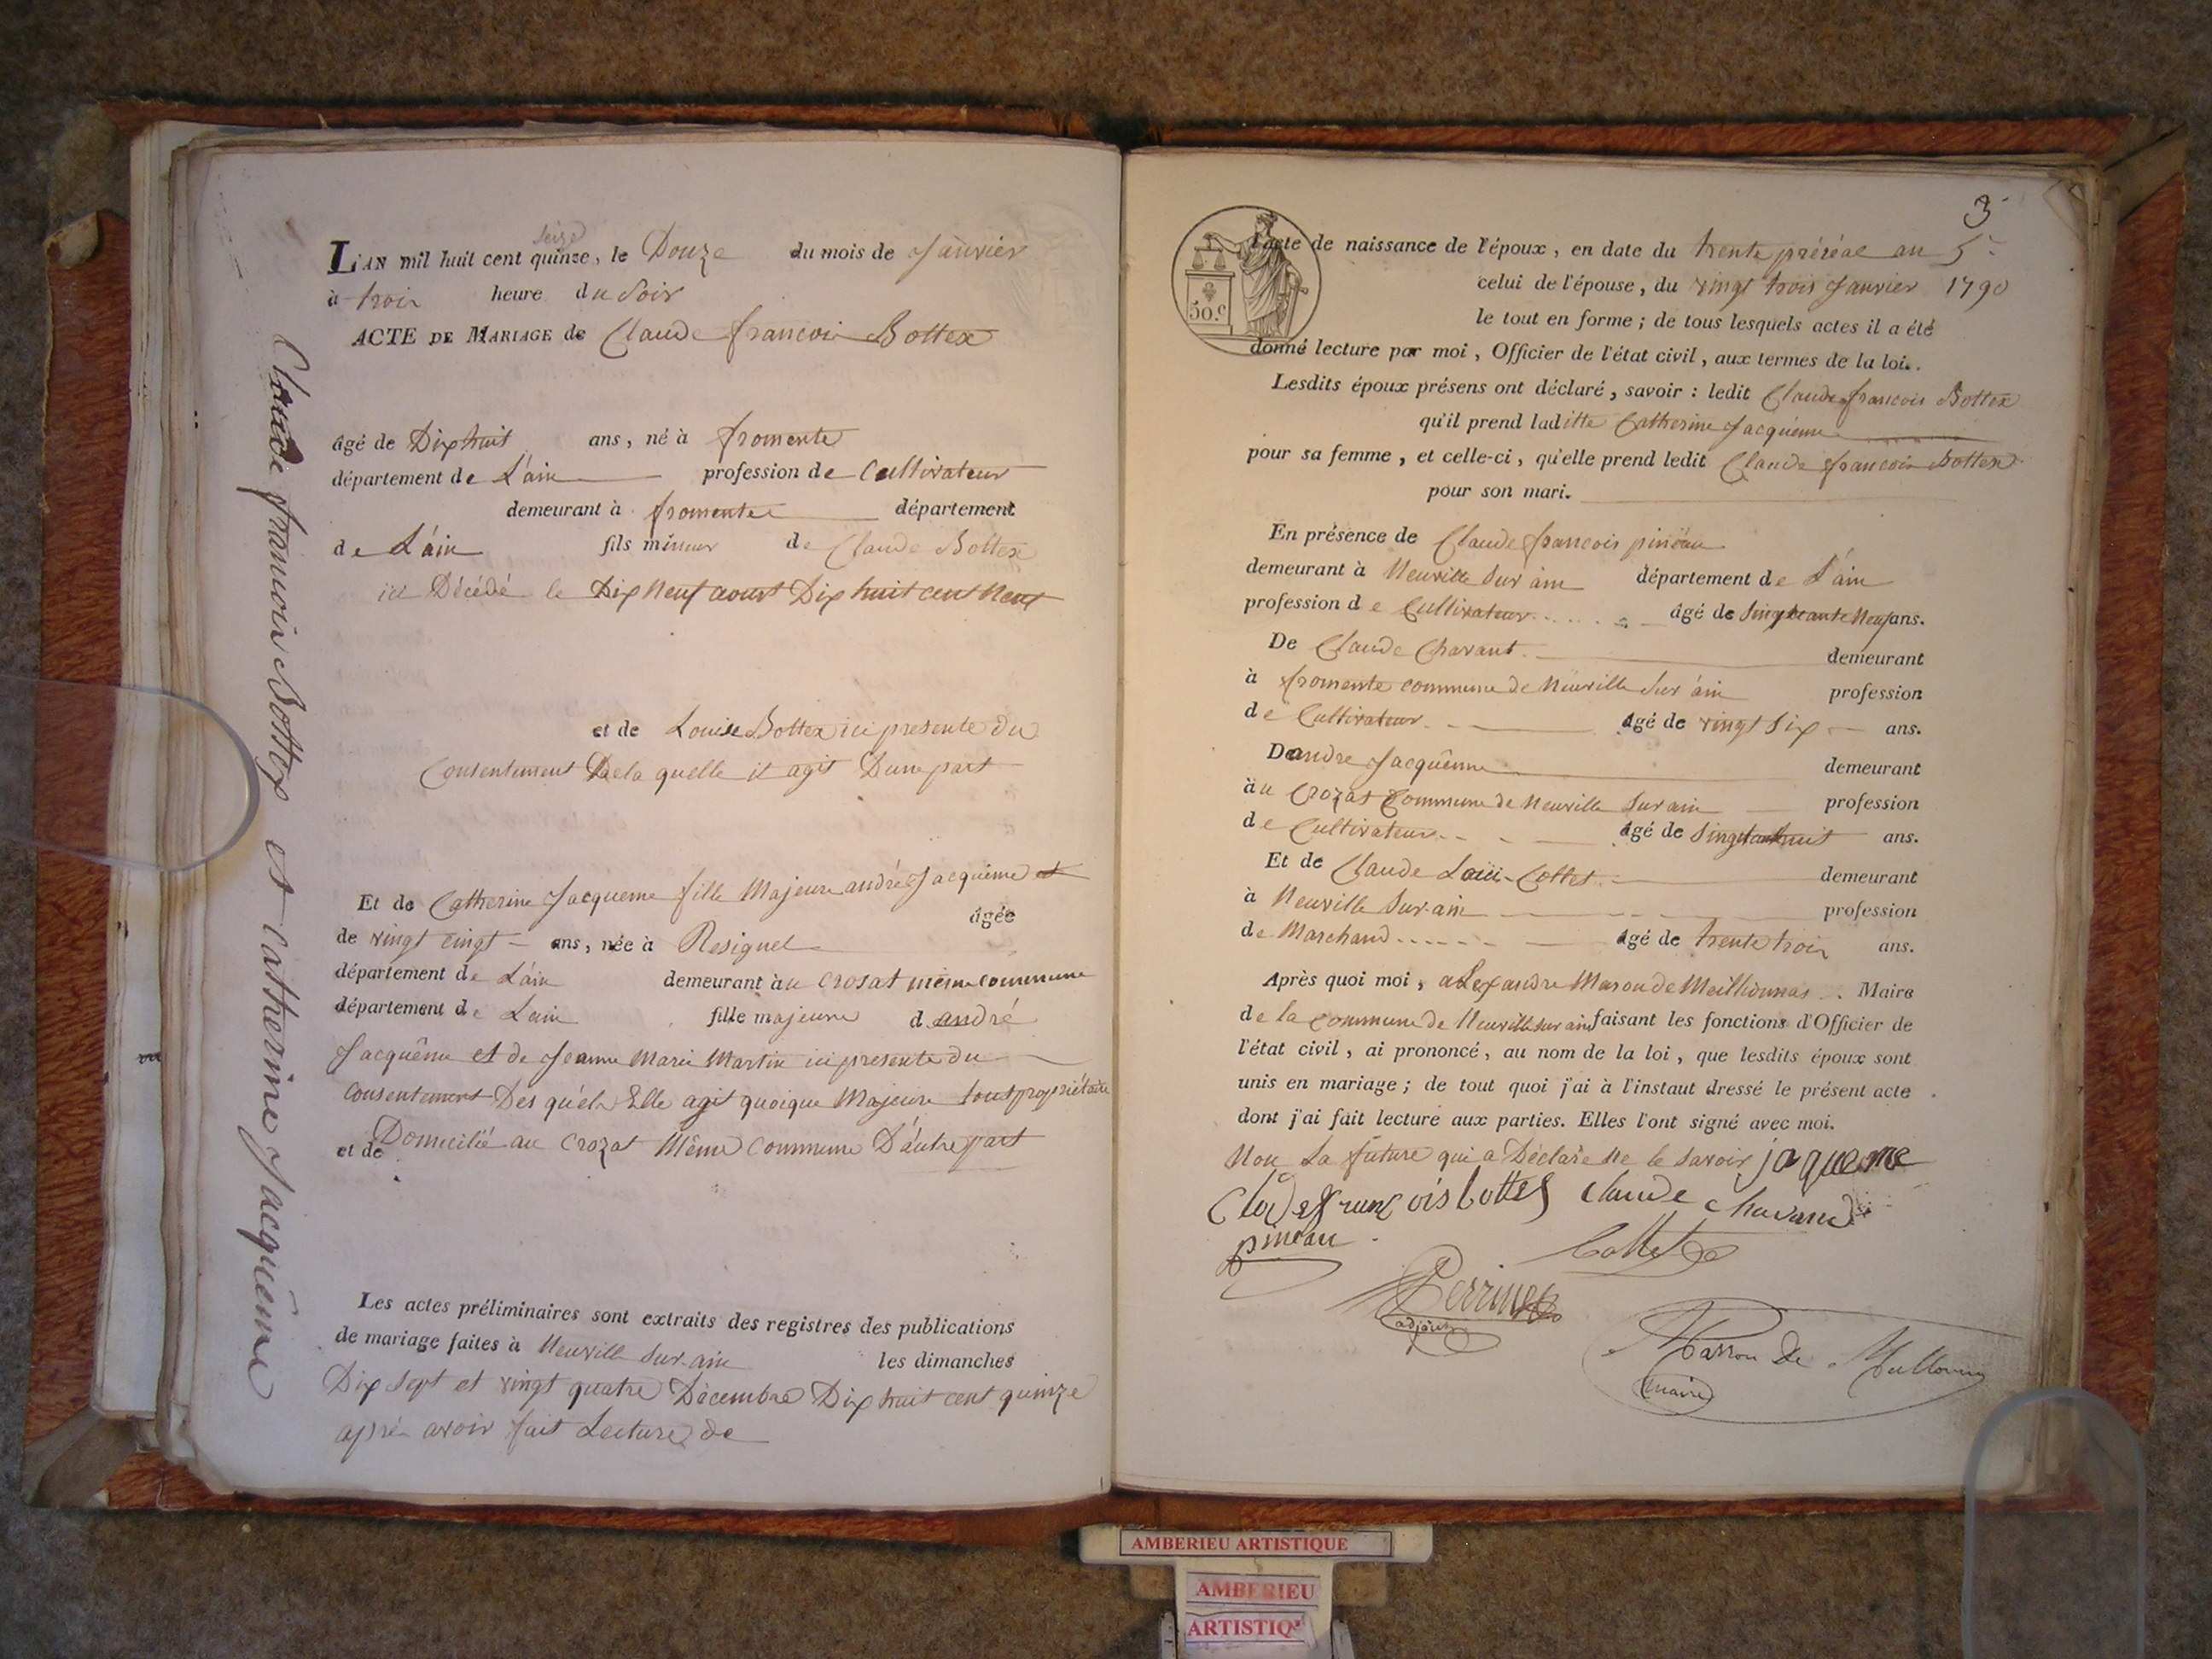 Claude francois Bottex et Catherine Jacquême
seize
L'AN mil huit cent quinze, le Douze du mois de Janvier
à trois heure du Soir
ACTE DE MARIAGE de Claude francois Bottex
âgé de Dix huit ans, né à fromente
département de L'ain profession de Cultivateur
demeurant à fromente département
de L'ain fils mineur de Claude Bottex
ici Décédé le Dix Neuf aoust Dix huit cent Neuf
et de Louise Bottex ici presente du
Consentement De la quelle il agit D'une part
Et de Catherine Jacqueme fille Majeure andré Jacquême et
âgée
de vingt cingt ans, née à Resignel
département de L'ain demeurant à u Crosat même commune
département de Lain fille majeure d andré
Jacquême et de Jeanne Marie Martin ici presente du
Consentement Des quéls Elle agit quoique Majeure tout propriétaire
et de Domicilié au Crozat Même Commune D'autre part
Les actes préliminaires sont extraits des registres des publications
de mariage faites à Neuville Sur-ain les dimanches
Dix Sept et vingt quatre Décembre Dix huit cent quinze
après avoir fait Lecture de
3
50.c
l'acte de naissance de l'époux, en date du trente préréal an 5e
celui de l'épouse, du vingt trois Janvier 1790
le tout en forme; de tous lesquels actes il a été
donné lecture par moi, Officier de l'état civil, aux termes de la loi.
Lesdits époux présens ont déclaré, savoir: ledit Claude francois Bottex
qu'il prend laditte Catherine Jacquême
pour sa femme, et celle-ci, qu'elle prend ledit Claude francois Bottex
pour son mari.
En présence de Claude francois pinéau
demeurant à Neuville Sur ain département de L'ain
profession de Cultivateur âgé de Singtcante Neuf ans.
De Claude Chavant demeurant
à fromente commune de Neuville Sur ain profession
de Cultivateur âgé de vingt Six ans.
D andre Jacquême demeurant
à u Crozat Commune de Neuville Sur ain profession
de Cultivateur âgé de ans.
Et de Claude Louis Cottet demeurant
à Neuville Sur-ain profession
de Marchand âgé de trente trois ans.
Après quoi moi, aLexandre Maron de Meillionnas Maire
de la Commune de Neuville sur ain faisant les fonctions d'Officier de
l'état civil, ai prononcé, au nom de la loi, que lesdits époux sont
unis en mariage; de tout quoi j'ai à l'instaut dressé le présent acte
dont j'ai fait lecture aux parties. Elles l'ont signé avec moi.
Non La future qui a Déclaré ne le savoir jaqueme
francois bottex claude chavand
pineau Cottet
Perrinet
adjoint
Marron de
maire
AMBERIEU ARTISTIQUE
AMBERIEU
ARTISTIQ